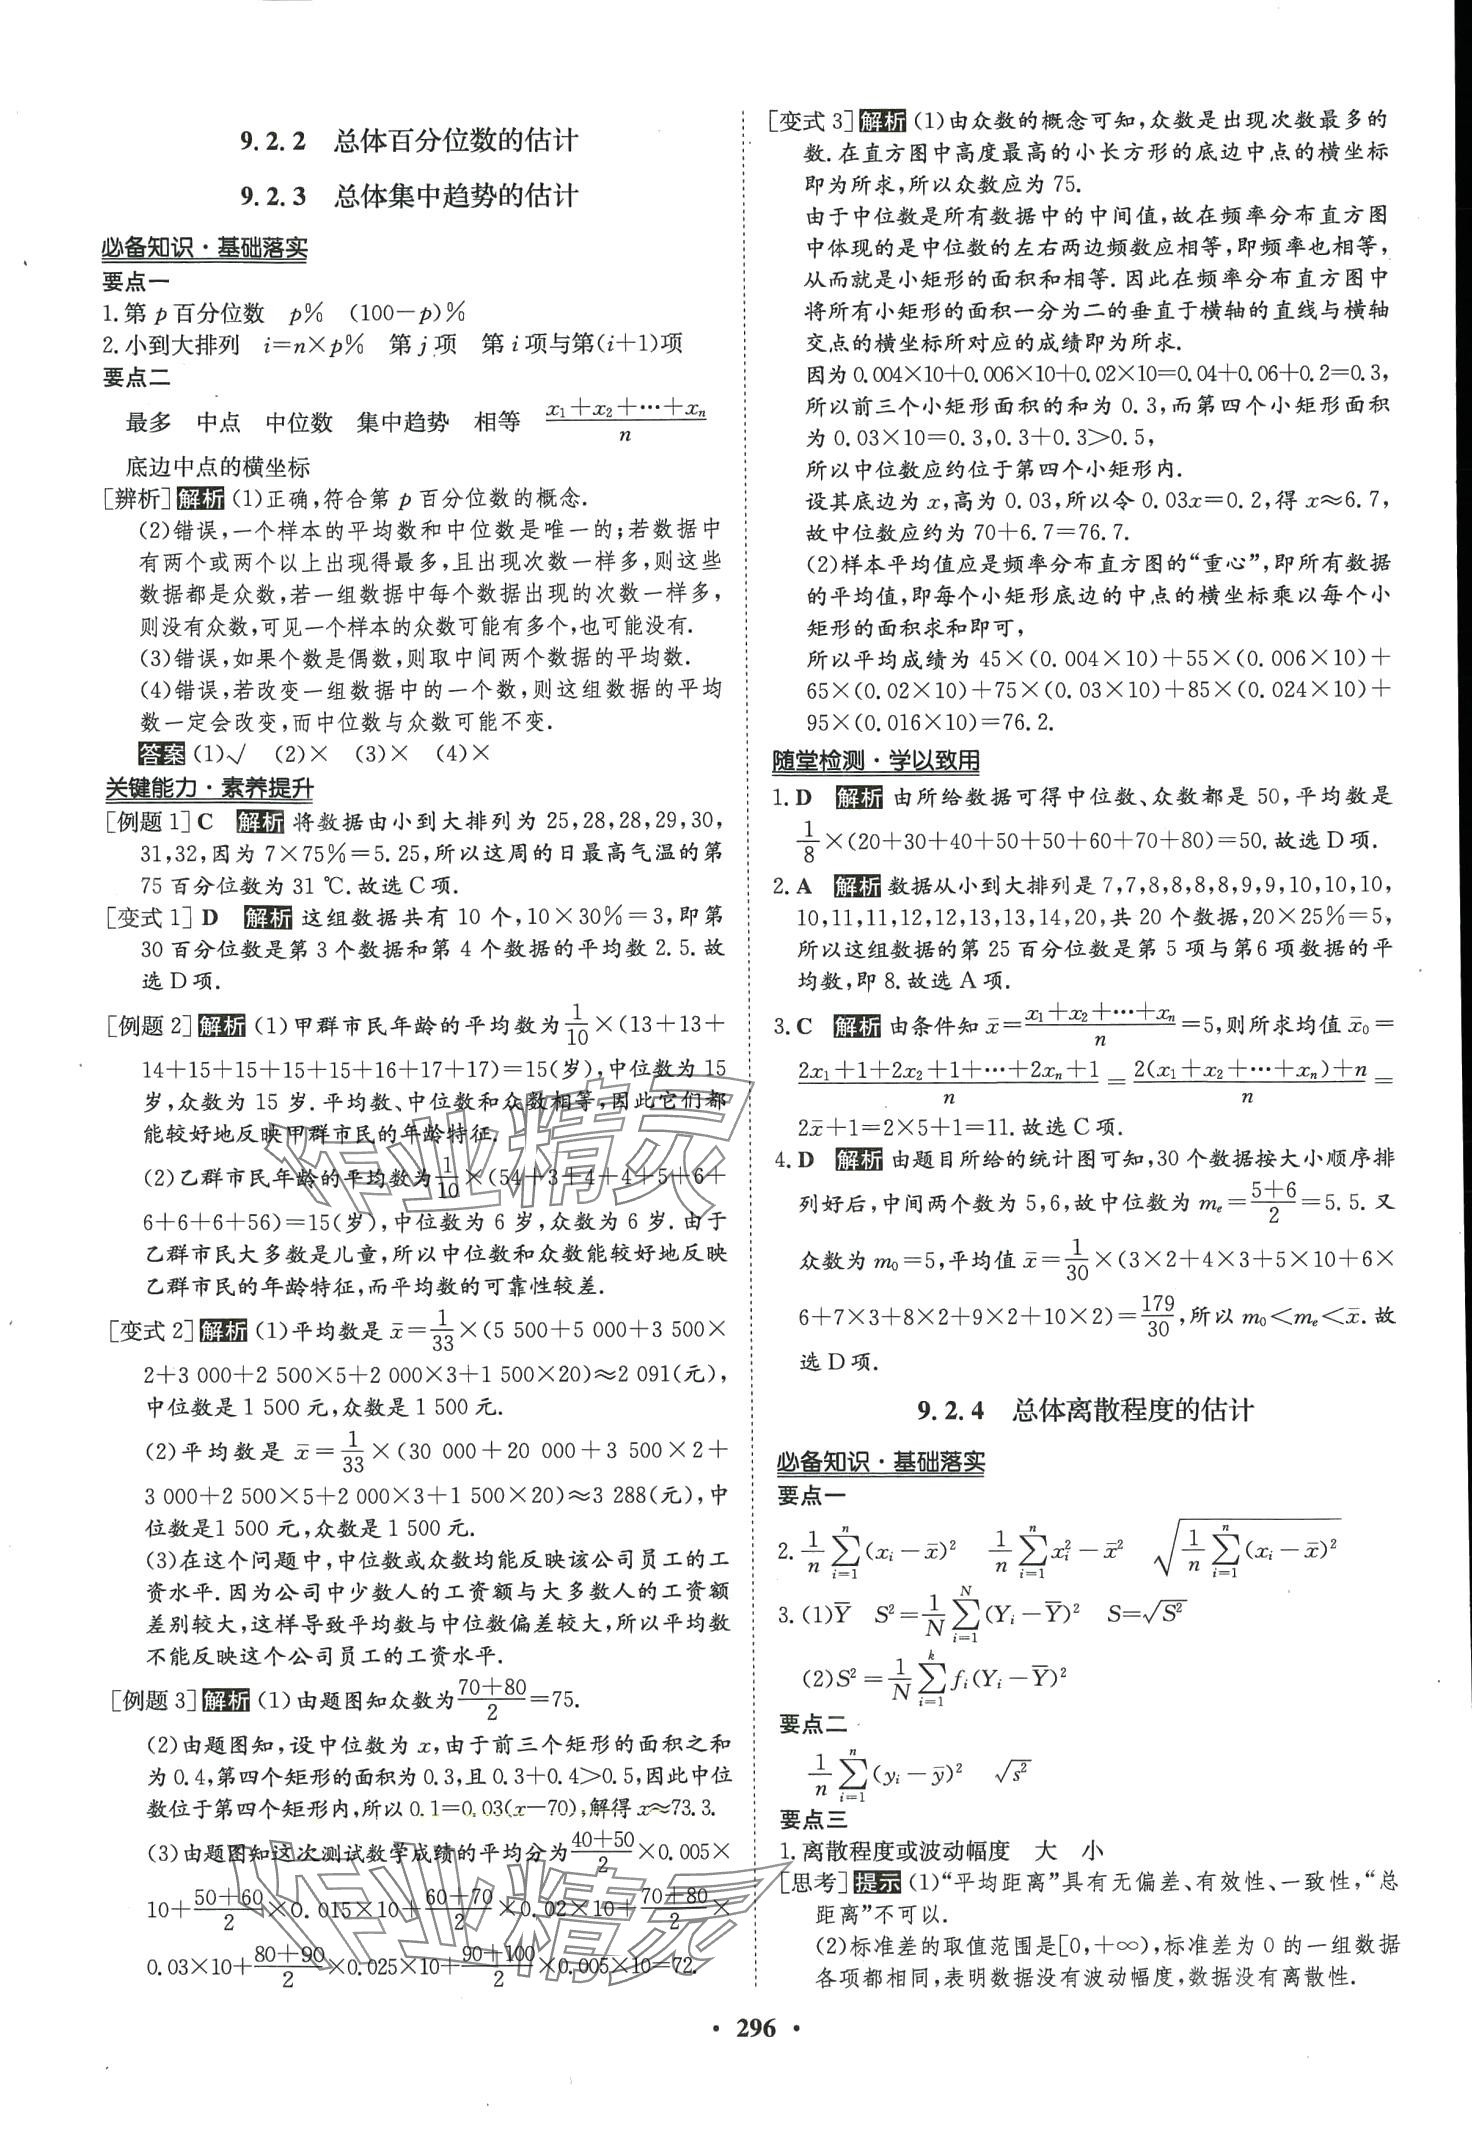 9.2.2 总体百分位数的估计
9.2.3 总体集中趋势的估计
必备知识·基础落实
要点一
1.第 p 百分位数 p% (100-p)%
2.小到大排列 i=n×p% 第 j 项 第 i 项与第(i+1)项
要点二
最多 中点 中位数 集中趋势 相等 \frac{x₁+x₂+⋯+xₙ}{n}
底边中点的横坐标
[辨析]解析(1)正确,符合第 p 百分位数的概念.
(2)错误,一个样本的平均数和中位数是唯一的;若数据中
有两个或两个以上出现得最多,且出现次数一样多,则这些
数据都是众数,若一组数据中每个数据出现的次数一样多,
则没有众数,可见一个样本的众数可能有多个,也可能没有.
(3)错误,如果个数是偶数,则取中间两个数据的平均数.
(4)错误,若改变一组数据中的一个数,则这组数据的平均
数一定会改变,而中位数与众数可能不变.
答案(1)√ (2)× (3)× (4)×
关键能力·素养提升
[例题 1]C 解析 将数据由小到大排列为 25,28,28,29,30,
31,32,因为 7×75%=5.25,所以这周的日最高气温的第
75 百分位数为 31 ℃.故选C项.
[变式 1]D 解析 这组数据共有 10 个,10×30%=3,即第
30 百分位数是第 3 个数据和第 4 个数据的平均数 2.5.故
选D项.
[例题 2]解析(1)甲群市民年龄的平均数为\frac{1}{10}×(13+13+
14+15+15+15+15+16+17+17)=15(岁),中位数为 15
岁,众数为 15 岁.平均数、中位数和众数相等,因此它们都
能较好地反映甲群市民的年龄特征.
(2)乙群市民年龄的平均数为\frac{1}{10}×(54+3+4+4+5+6+
6+6+6+56)=15(岁),中位数为 6 岁,众数为 6 岁.由于
乙群市民大多数是儿童,所以中位数和众数能较好地反映
乙群市民的年龄特征,而平均数的可靠性较差.
[变式 2]解析(1)平均数是 x̄=\frac{1}{33}×(5 500+5 000+3 500×
2+3 000+2 500×5+2 000×3+1 500×20)≈2 091(元),
中位数是 1 500 元,众数是 1 500 元.
(2)平均数是 x̄=\frac{1}{33}×(30 000+20 000+3 500×2+
3 000+2 500×5+2 000×3+1 500×20)≈3 288(元),中
位数是1 500 元,众数是 1 500 元.
(3)在这个问题中,中位数或众数均能反映该公司员工的工
资水平.因为公司中少数人的工资额与大多数人的工资额
差别较大,这样导致平均数与中位数偏差较大,所以平均数
不能反映这个公司员工的工资水平.
[例题 3]解析(1)由题图知众数为\frac{70+80}{2}=75.
(2)由题图知,设中位数为 x,由于前三个矩形的面积之和
为 0.4,第四个矩形的面积为 0.3,且 0.3+0.4>0.5,因此中位
数位于第四个矩形内,所以 0.1=0.03(x-70),解得 x≈73.3.
(3)由题图知这次测试数学成绩的平均分为\frac{40+50}{2}×0.005×
10+\frac{50+60}{2}×0.015×10+\frac{60+70}{2}×0.02×10+\frac{70+80}{2}×
0.03×10+\frac{80+90}{2}×0.025×10+\frac{90+100}{2}×0.005×10=72.
[变式 3]解析(1)由众数的概念可知,众数是出现次数最多的
数.在直方图中高度最高的小长方形的底边中点的横坐标
即为所求,所以众数应为 75.
由于中位数是所有数据中的中间值,故在频率分布直方图
中体现的是中位数的左右两边频数应相等,即频率也相等,
从而就是小矩形的面积和相等.因此在频率分布直方图中
将所有小矩形的面积一分为二的垂直于横轴的直线与横轴
交点的横坐标所对应的成绩即为所求.
因为 0.004×10+0.006×10+0.02×10=0.04+0.06+0.2=0.3,
所以前三个小矩形面积的和为 0.3,而第四个小矩形面积
为 0.03×10=0.3,0.3+0.3>0.5,
所以中位数应约位于第四个小矩形内.
设其底边为 x,高为 0.03,所以令 0.03x=0.2,得 x≈6.7,
故中位数应约为 70+6.7=76.7.
(2)样本平均值应是频率分布直方图的“重心”,即所有数据
的平均值,即每个小矩形底边的中点的横坐标乘以每个小
矩形的面积求和即可,
所以平均成绩为 45×(0.004×10)+55×(0.006×10)+
65×(0.02×10)+75×(0.03×10)+85×(0.024×10)+
95×(0.016×10)=76.2.
随堂检测·学以致用
1.D 解析 由所给数据可得中位数、众数都是 50,平均数是
\frac{1}{8}×(20+30+40+50+50+60+70+80)=50.故选D项.
2.A 解析 数据从小到大排列是 7,7,8,8,8,8,9,9,10,10,10,
10,11,11,12,12,13,13,14,20,共 20 个数据,20×25%=5,
所以这组数据的第 25 百分位数是第 5 项与第6 项数据的平
均数,即 8.故选A项.
3.C 解析 由条件知 x̄=\frac{x₁+x₂+⋯+xₙ}{n}=5,则所求均值 x̄₀=
\frac{2x₁+1+2x₂+1+⋯+2xₙ+1}{n}=\frac{2(x₁+x₂+⋯+xₙ)+n}{n}=
2x̄+1=2×5+1=11.故选C项.
4.D 解析 由题目所给的统计图可知,30 个数据按大小顺序排
列好后,中间两个数为 5,6,故中位数为 mₑ=\frac{5+6}{2}=5.5.又
众数为 m₀=5,平均值 x̄=\frac{1}{30}×(3×2+4×3+5×10+6×
6+7×3+8×2+9×2+10×2)=\frac{179}{30},所以 m₀<mₑ<x̄.故
选D项.
9.2.4 总体离散程度的估计
必备知识·基础落实
要点一
2.\frac{1}{n}\sum_{i=1}^{n}(xᵢ-x̄)² \frac{1}{n}\sum_{i=1}^{n}xᵢ²-x̄² \sqrt{\frac{1}{n}\sum_{i=1}^{n}(xᵢ-x̄)²}
3.(1)Ȳ S²=\frac{1}{N}\sum_{i=1}^{N}(Yᵢ-Ȳ)² S=\sqrt{S²}
(2)S²=\frac{1}{N}\sum_{i=1}^{k}fᵢ(Yᵢ-Ȳ)²
要点二
\frac{1}{n}\sum_{i=1}^{n}(yᵢ-ȳ)² \sqrt{s²}
要点三
1.离散程度或波动幅度 大 小
[思考]提示(1)“平均距离”具有无偏差、有效性、一致性,“总
距离”不可以.
(2)标准差的取值范围是[0,+∞),标准差为 0 的一组数据
各项都相同,表明数据没有波动幅度,数据没有离散性.
· 296 ·
作业精灵
作业精灵